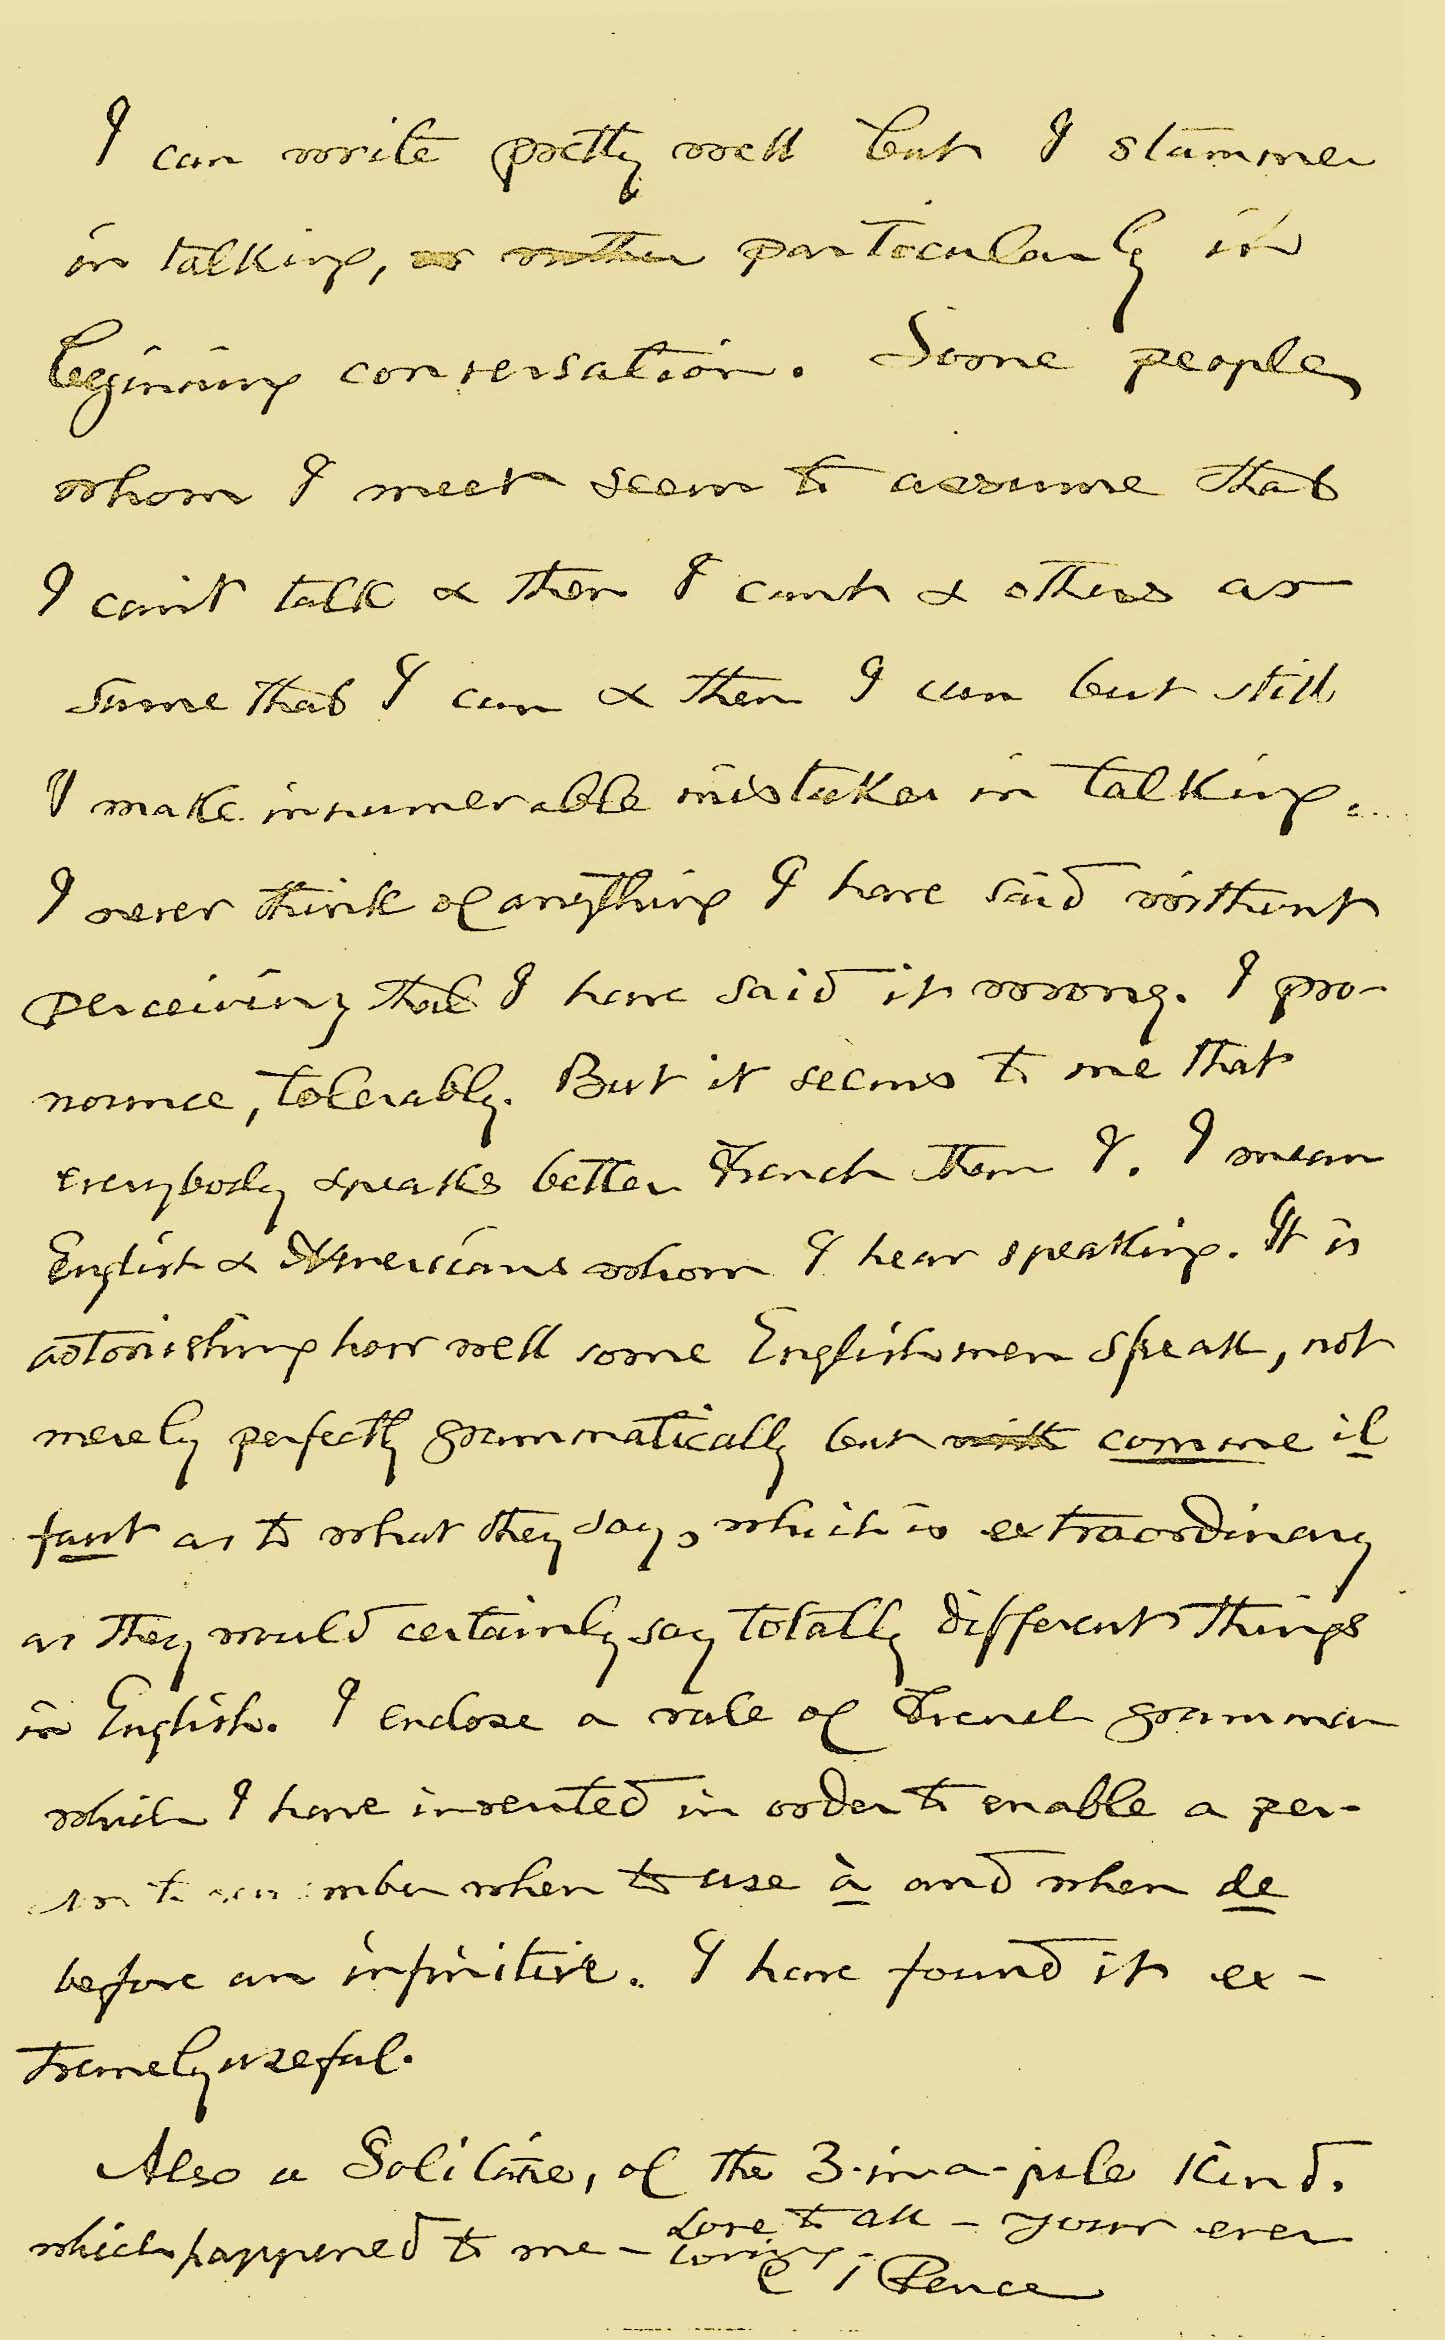 I can write pretty well but I stammer
in talking, or rather particularly in
begining conversation. Some people
whom I meet seem to assume that
I can't talk & then I can't & others as
sume that I can & then I can but still
I make innumerable mistakes in talking.
I never think of anything I have said without
perceiving that I have said it wrong. I pro-
nounce, tolerably. But it seems to me that
everybody speaks better French than I. I mean
English & Americans whom I hear speaking. It is
astonishing how well some Englishmen speak, not
merely perfectly grammatically but with comme il
faut as to what they say, which is extraordinary
as they would certainly say totally different things
in English. I enclose a rule of French grammar
which I have invented in order to enable a per-
son to remember when to use à and when de
before an infinitive. I have found it ex-
tremely useful.
Also a Solitaire, of the 3-in-a-pile kind.
which happened to me - Love to all - your ever
loving C S Peirce